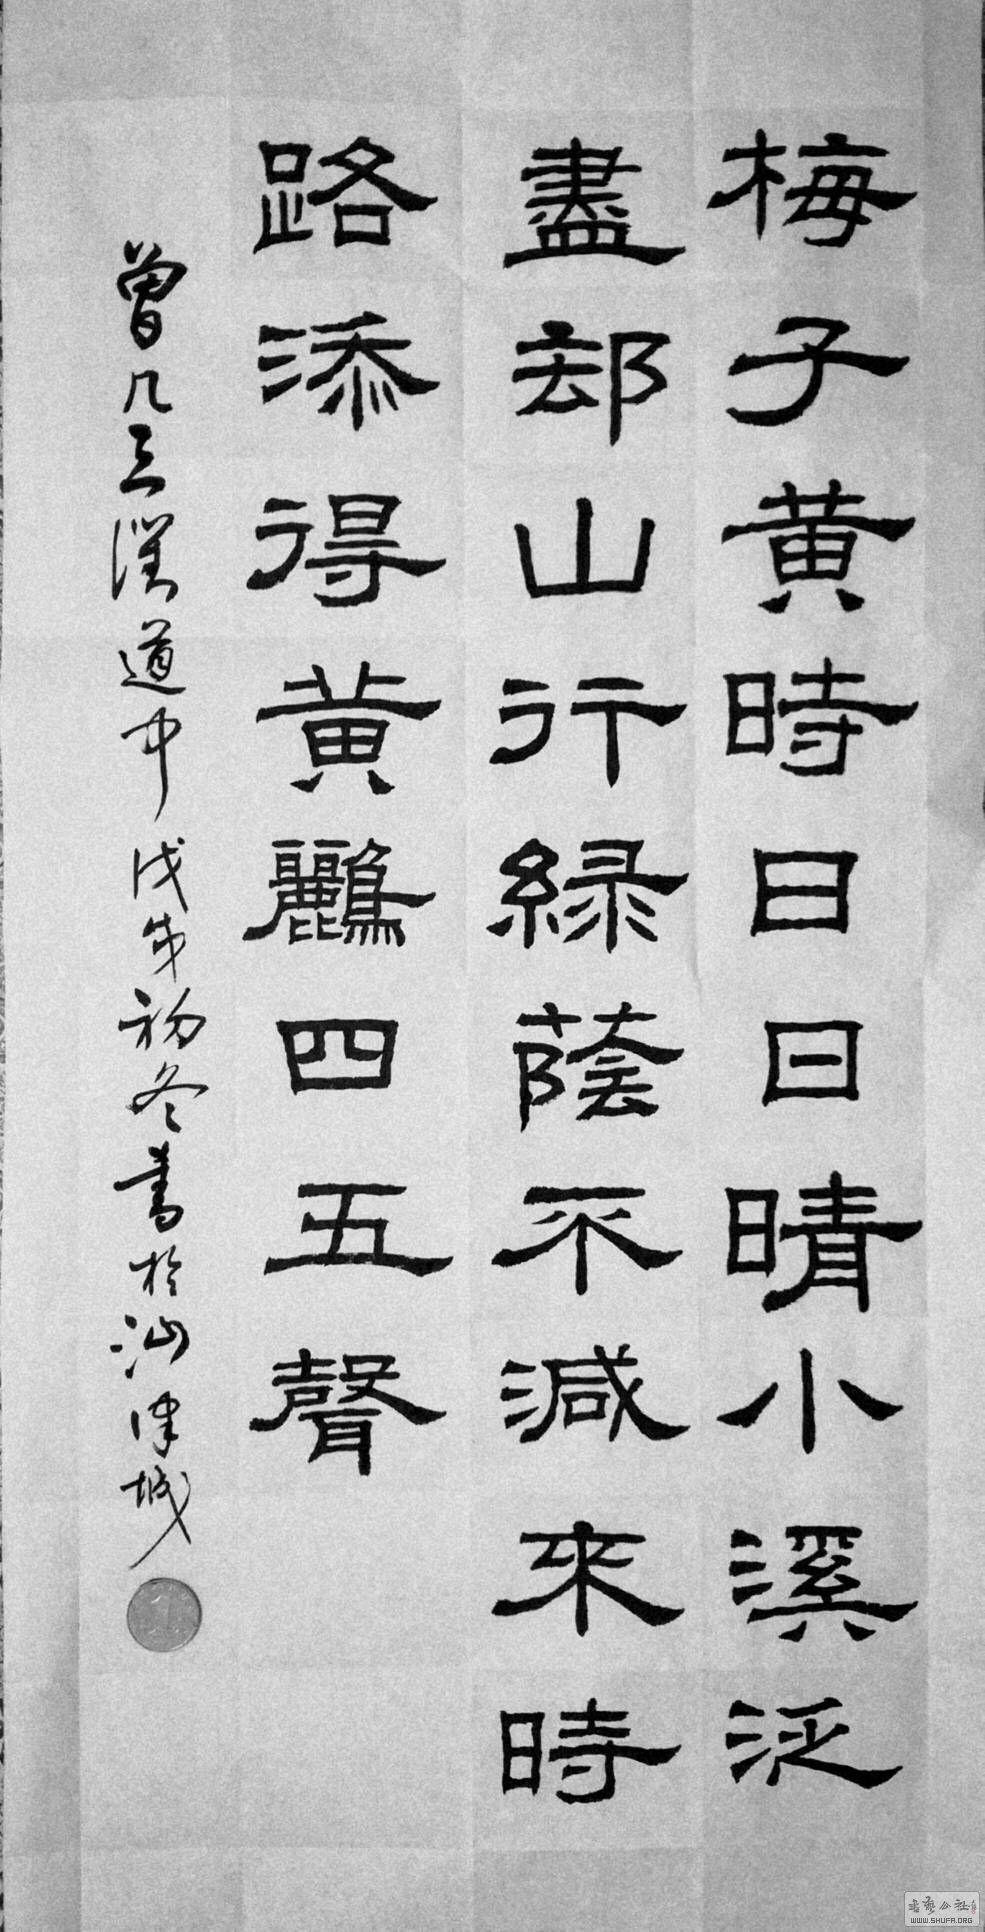 梅子黄時日日晴小溪泛
盡却山行緑蔭不減來時
路添得黄鸝四五聲
曾几三衢道中戊年初冬書於汕津城
1
書藝公社
WWW.SHUFA.ORG